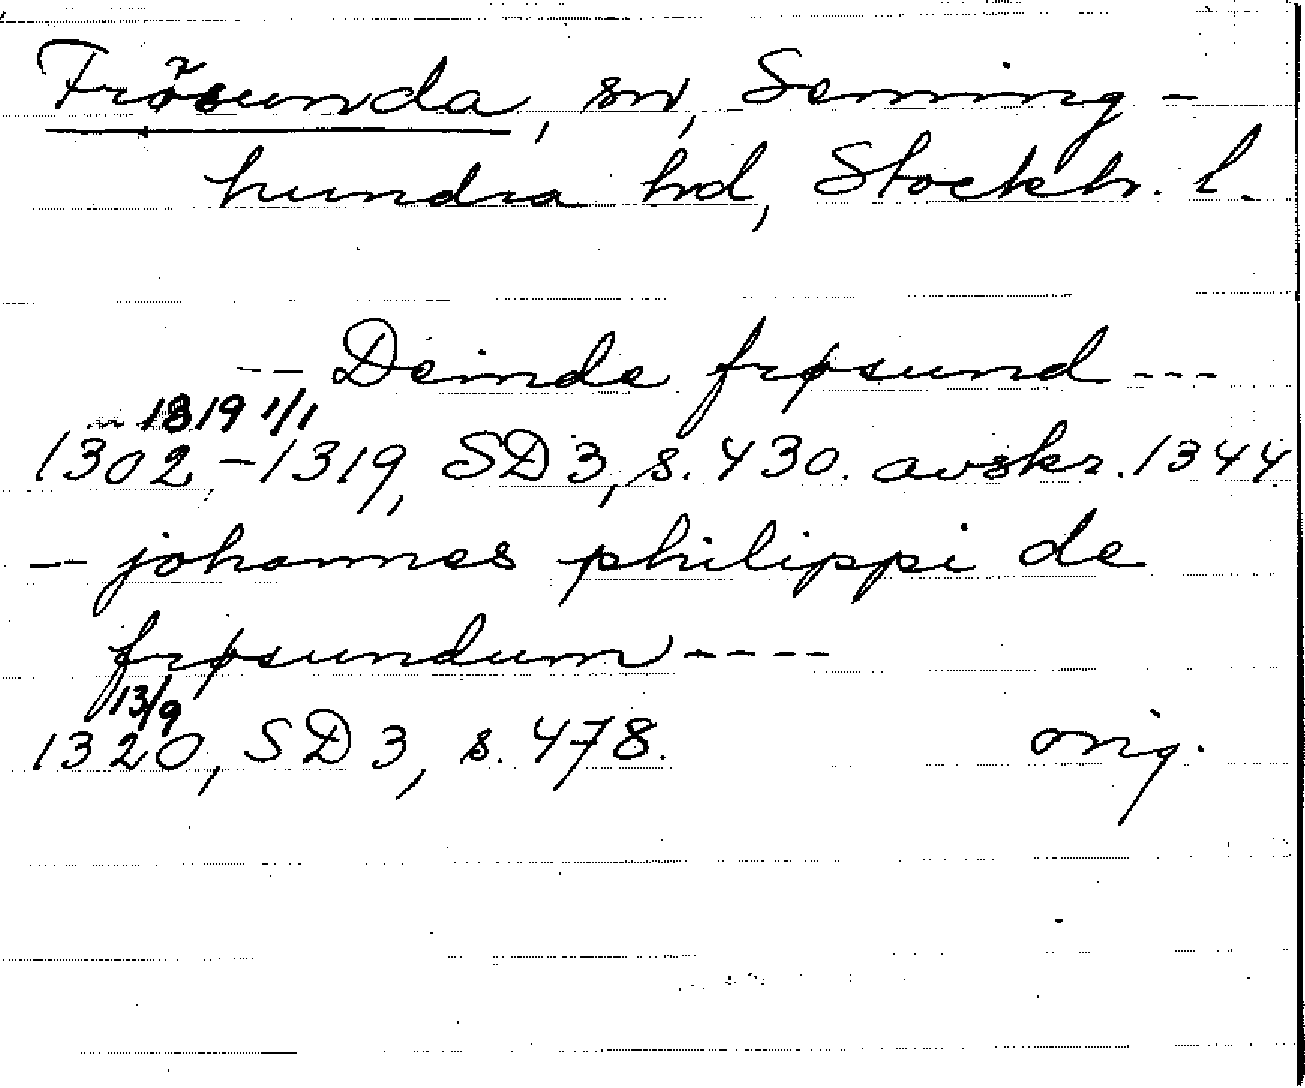 Frösunda, sn, Seming-
hundra hd, Stockh. l.
-- Deinde frøsund ---
1319 1/1
1302-1319, SD 3, s. 430. avskr. 1344.
- johannes philippi de
frøsundum ----
13/9
1320, SD 3, s. 478. orig.